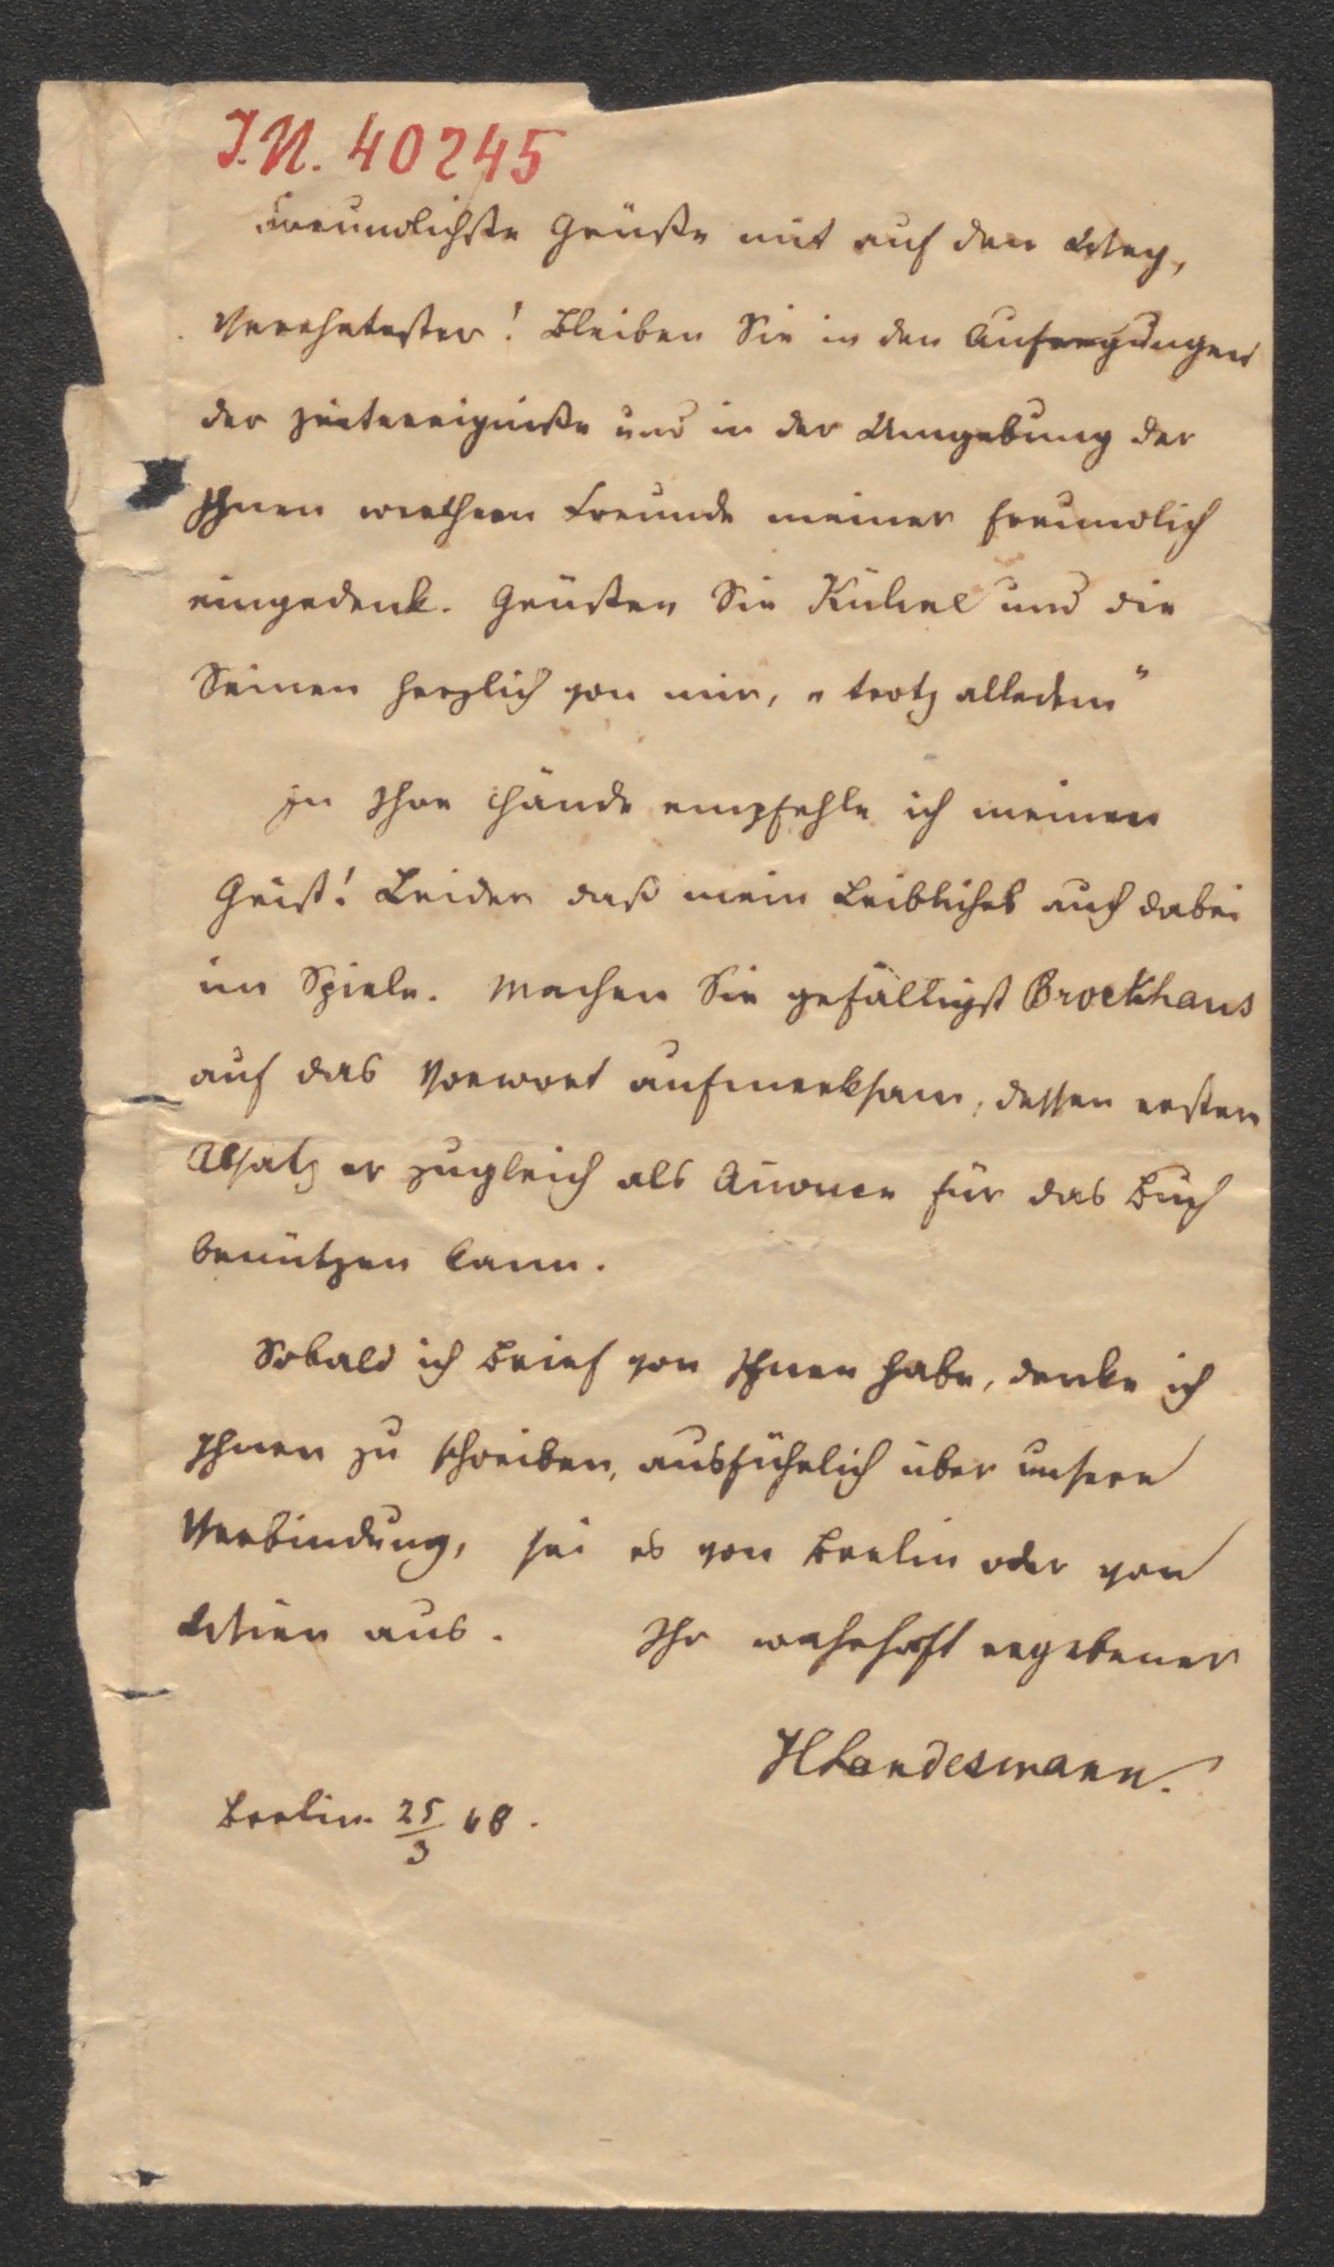 J.N. 40245
Freundlichste Grüße mit auf den Weg,
Verehrtester! Bleiben Sie in den Aufregungen
der Zeitereigniße und in der Umgebung der
Ihnen werthern Freunde meiner freundlich
eingedenk. Grüßen Sie und die
Seinen herzlich von mir, „trotz alledem"
In Ihre Hände empfehle ich meinen
Geist! Leider daß mein Leibliches auch dabei
im Spiele. Machen Sie gefälligst Brockhaus
auf das Vorwort aufmerksam, dessen ersten
Absatz er zugleich als Anonce für das Buch
benützen kann.
Sobald ich Brief von Ihnen habe, denke ich
Ihnen zu schreiben, ausführlich über unsere
Verbindung, sei es von Berlin oder von
Wien aus. Ihr wahrhaft ergebener
HLandesmann.
Berlin 25/3 48.